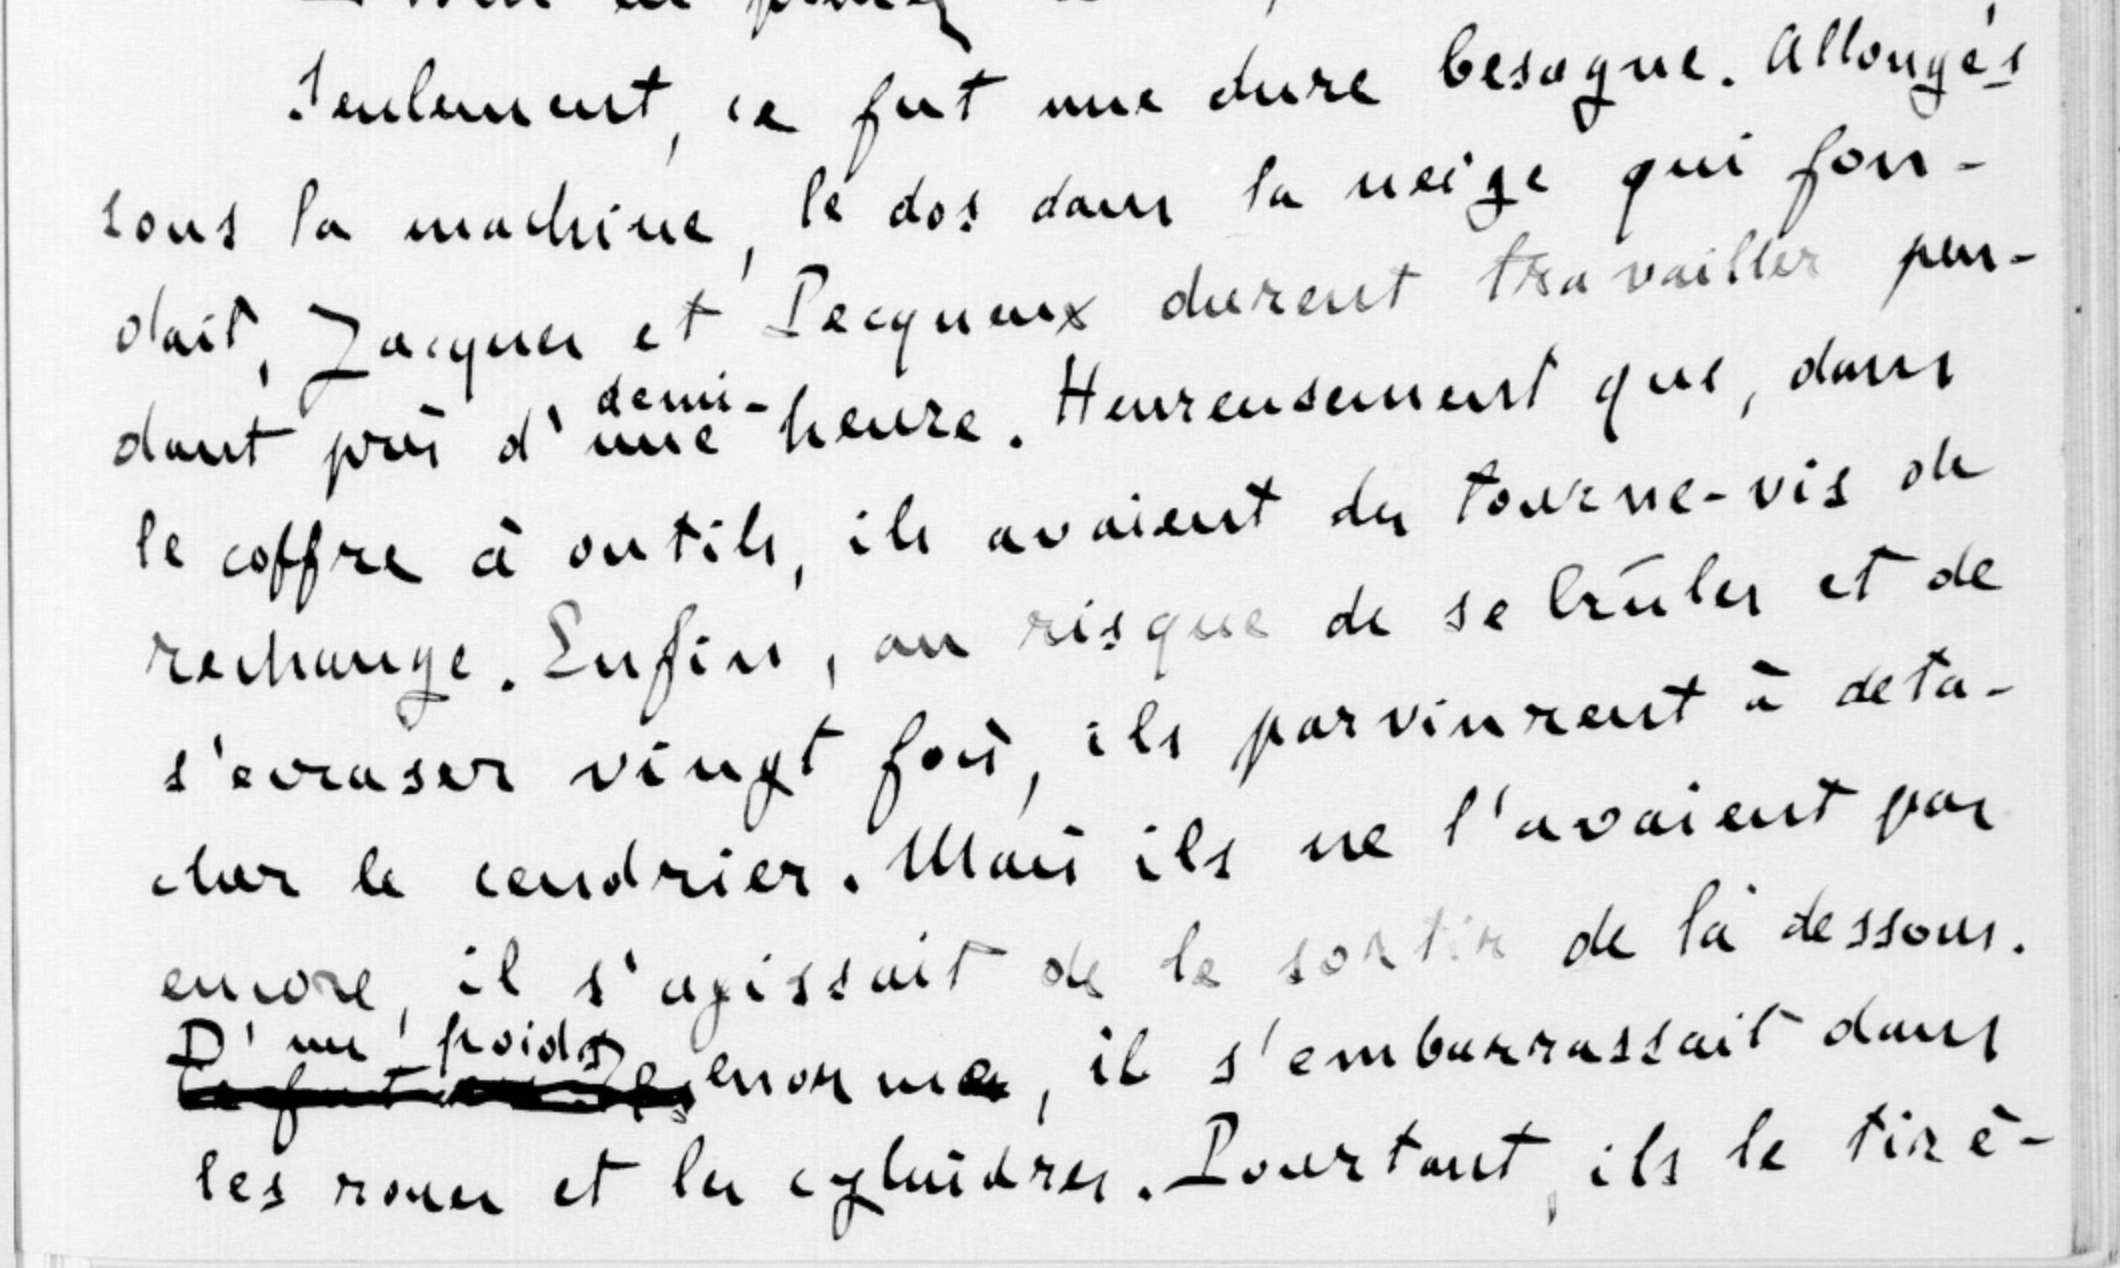 Seulement, ce fut une dure besogne. Allongés
sous la machine, le dos dans la neige qui fon-
dait, Jacques et Pecqueux durent travailler pen-
dant près d'une demi-heure. Heureusement que, dans
le coffre à outils, ils avaient des tourne-vis de
rechange. Enfin, au risque de se brûler et de
s'écraser vingt fois, ils parvinrent à déta-
cher le cendrier. Mais ils ne l'avaient pas
encore, il s'agissait de le sortir de là dessous.
D'un poids énorme, il s'embarrassait dans
les roues et les cylindres. Pourtant, ils le tirè-